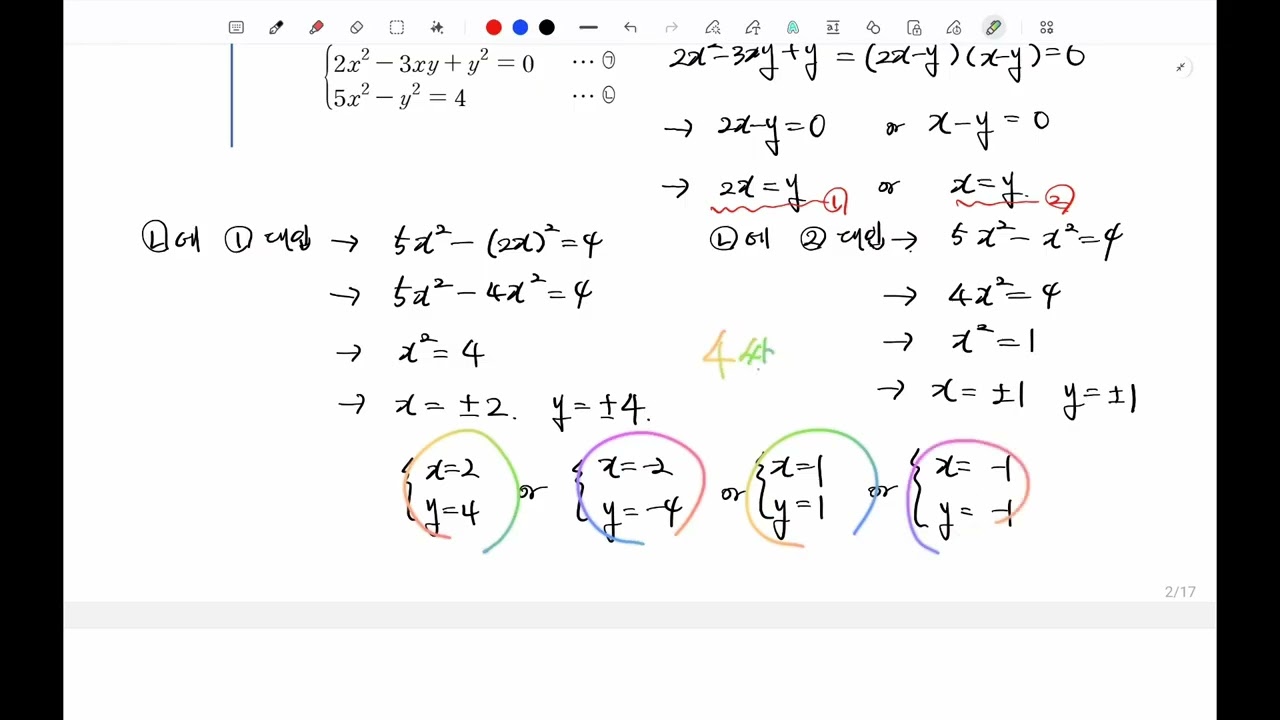 2x² − 3xy + y² = 0 ⋯ ㉠
5x² − y² = 4 ⋯ ㉡
2x²−3xy+y = (2x−y)(x−y)=0
→ 2x−y=0 or x−y=0
→ 2x=y ① or x=y. ②
㉡에 ① 대입 → 5x²−(2x)²=4
→ 5x²−4x²=4
→ x²=4
→ x=±2. y=±4.
㉡에 ② 대입 → 5x²−x²=4
→ 4x²=4
→ x²=1
→ x=±1 y=±1
4
x=2 or x=-2 or x=1 or x=-1
y=4 y=-4 y=1 y=-1
2/17